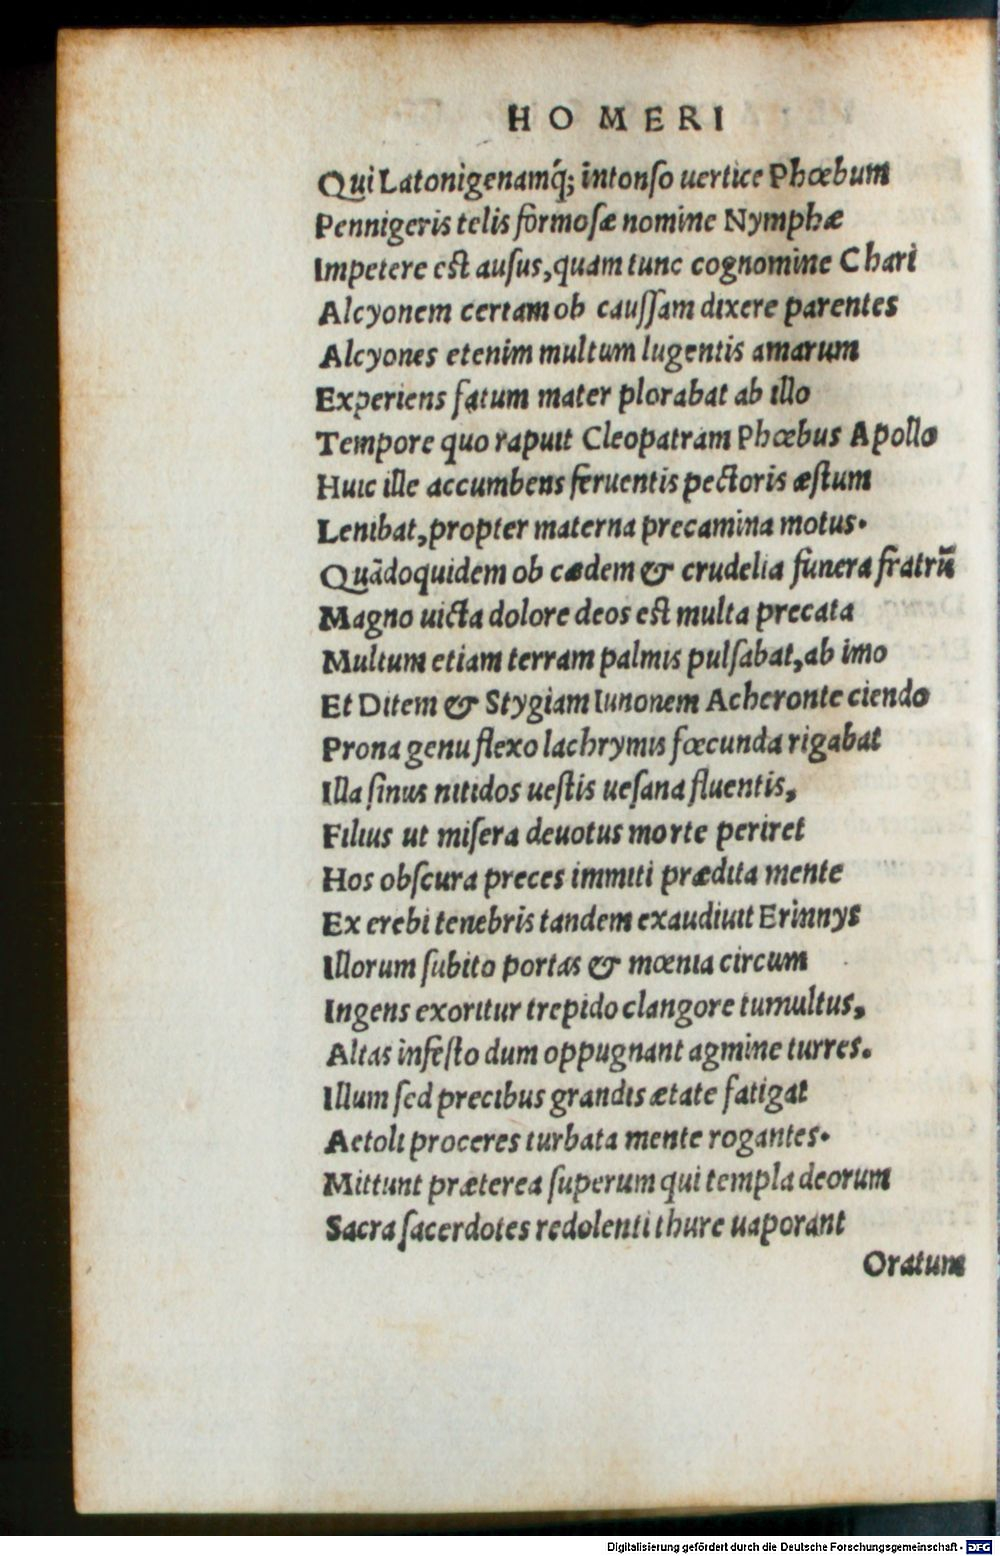 HOMERI
Qui Latonigenamq́; intonſo uertice Phœbum
Pennigeris telis formoſæ nomine Nymphæ
Impetere eſt auſus, quam tunc cognomine Chari
Alcyonem certam ob cauſſam dixere parentes
Alcyones etenim multum lugentis amarum
Experiens fatum mater plorabat ab illo
Tempore quo rapuit Cleopatram Phœbus Apollo
Huic ille accumbens feruentis pectoris æſtum
Lenibat, propter materna precamina motus.
Quãdoquidem ob cædem & crudelia funera fratrũ
Magno uicta dolore deos eſt multa precata
Multum etiam terram palmis pulſabat, ab imo
Et Ditem & Stygiam Iunonem Acheronte ciendo
Prona genu flexo lachrymis fœcunda rigabat
Illa ſinus nitidos ueſtis ueſana fluentis,
Filius ut miſera deuotus morte periret
Hos obſcura preces immiti prædita mente
Ex erebi tenebris tandem exaudiuit Erinnys
Illorum ſubito portas & mœnia circum
Ingens exoritur trepido clangore tumultus,
Altas infeſto dum oppugnant agmine turres.
Illum ſed precibus grandis ætate fatigat
Aetoli proceres turbata mente rogantes.
Mittunt præterea ſuperum qui templa deorum
Sacra ſacerdotes redolenti thure uaporant
Oratum
Digitalisierung gefördert durch die Deutsche Forschungsgemeinschaft - DFG